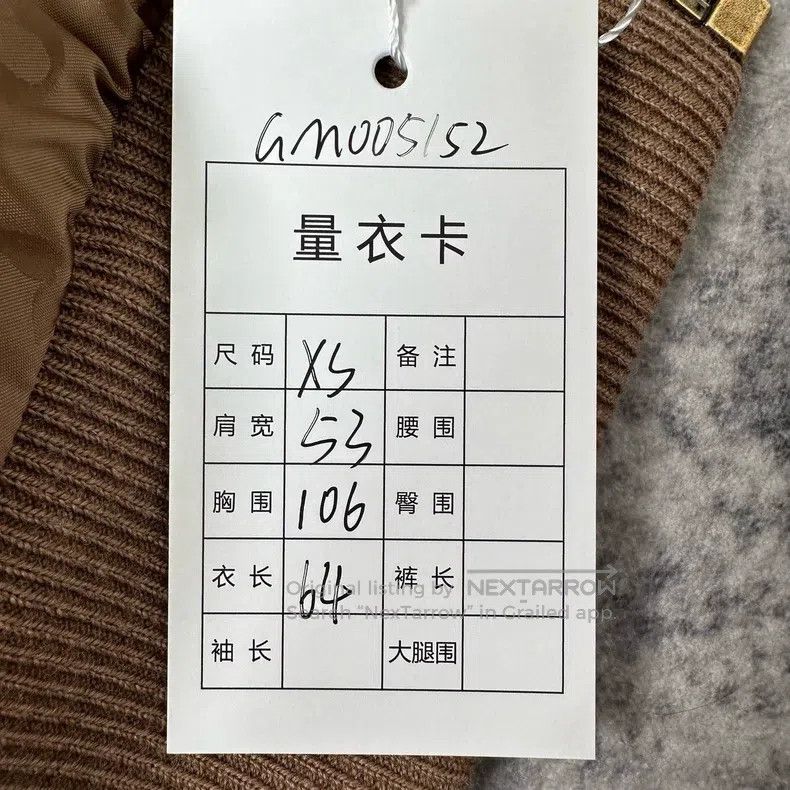 GM005152
量衣卡
尺码 XS 备注
肩宽 53 腰围
胸围 106 臀围
衣长 64 裤长
袖长 大腿围
Original listing by NEXTARROW
Search "NexTarrow" in Grailed app.